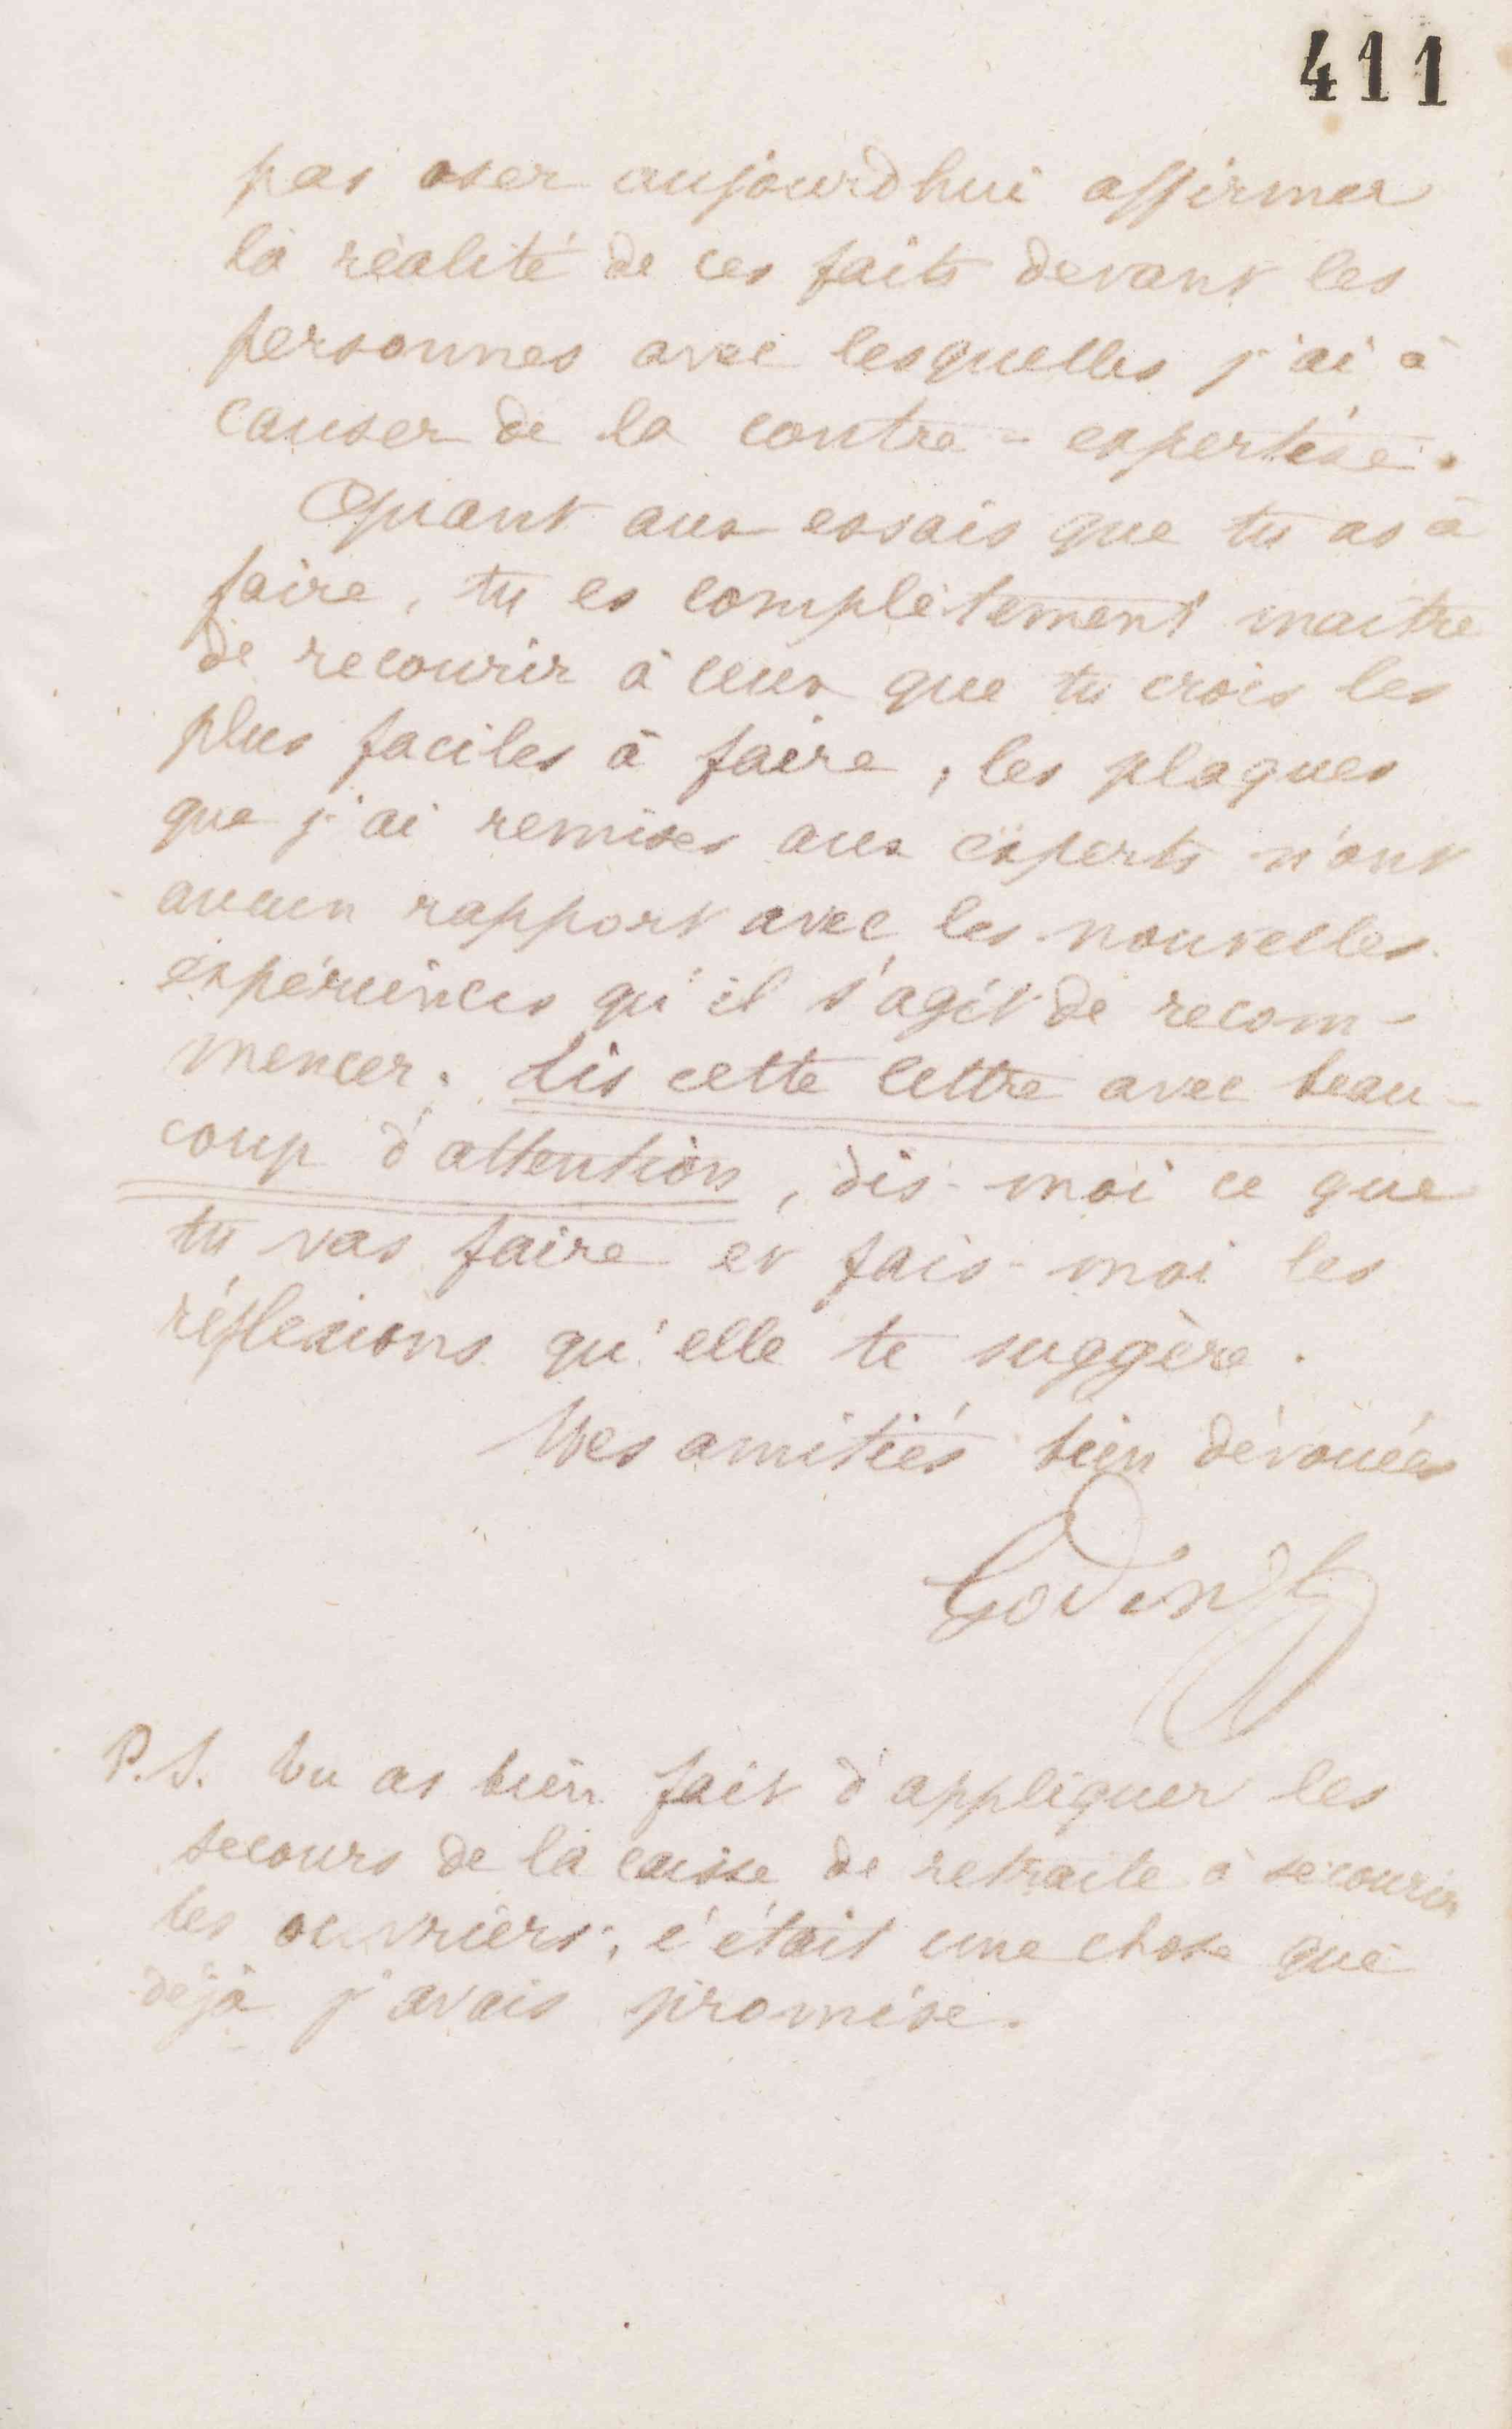 411
pas oser aujourdhui affirmer
la réalité de ces faits devant les
personnes avec lesquelles j'ai à
causer de la contre-expertise.
Quant aux essais que tu as à
faire, tu es complètement maitre
de recourir à ceux que tu crois les
plus faciles à faire, les plaques
que j'ai remises aux experts n'ont
aucun rapport avec les nouvelles
expériences qu'il s'agit de recom-
mencer. Lis cette lettre avec beau-
coup d'attention, dis-moi ce que
tu vas faire et fais-moi les
réflexions qu'elle te suggère.
Mes amitiés bien dévouées
Godin
P.S. Tu as bien fait d'appliquer les
secours de la caisse de retraite à secourir
les ouvriers; c'était une chose que
déjà j'avais promise.